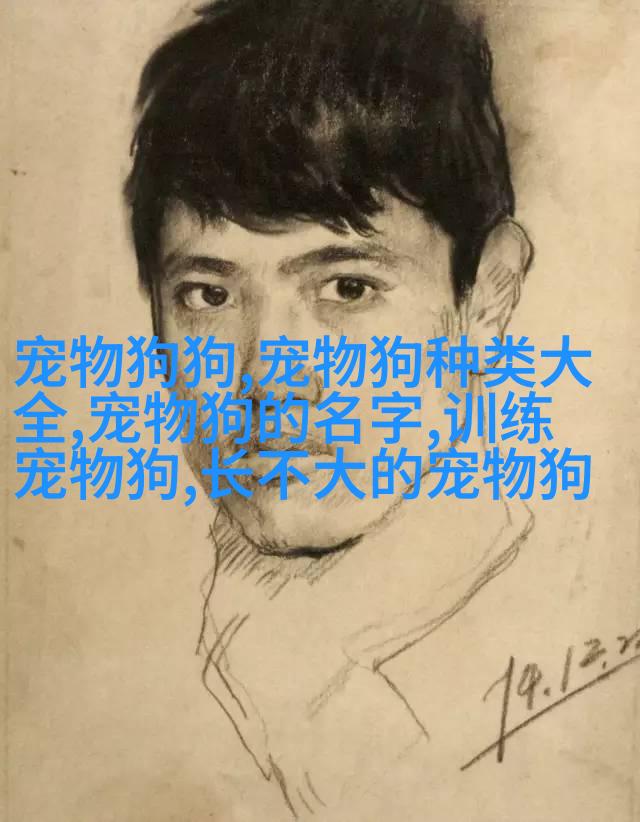 宠物狗狗,宠物狗种类大
全,宠物狗的名字,训练
宠物狗,长不大的宠物狗